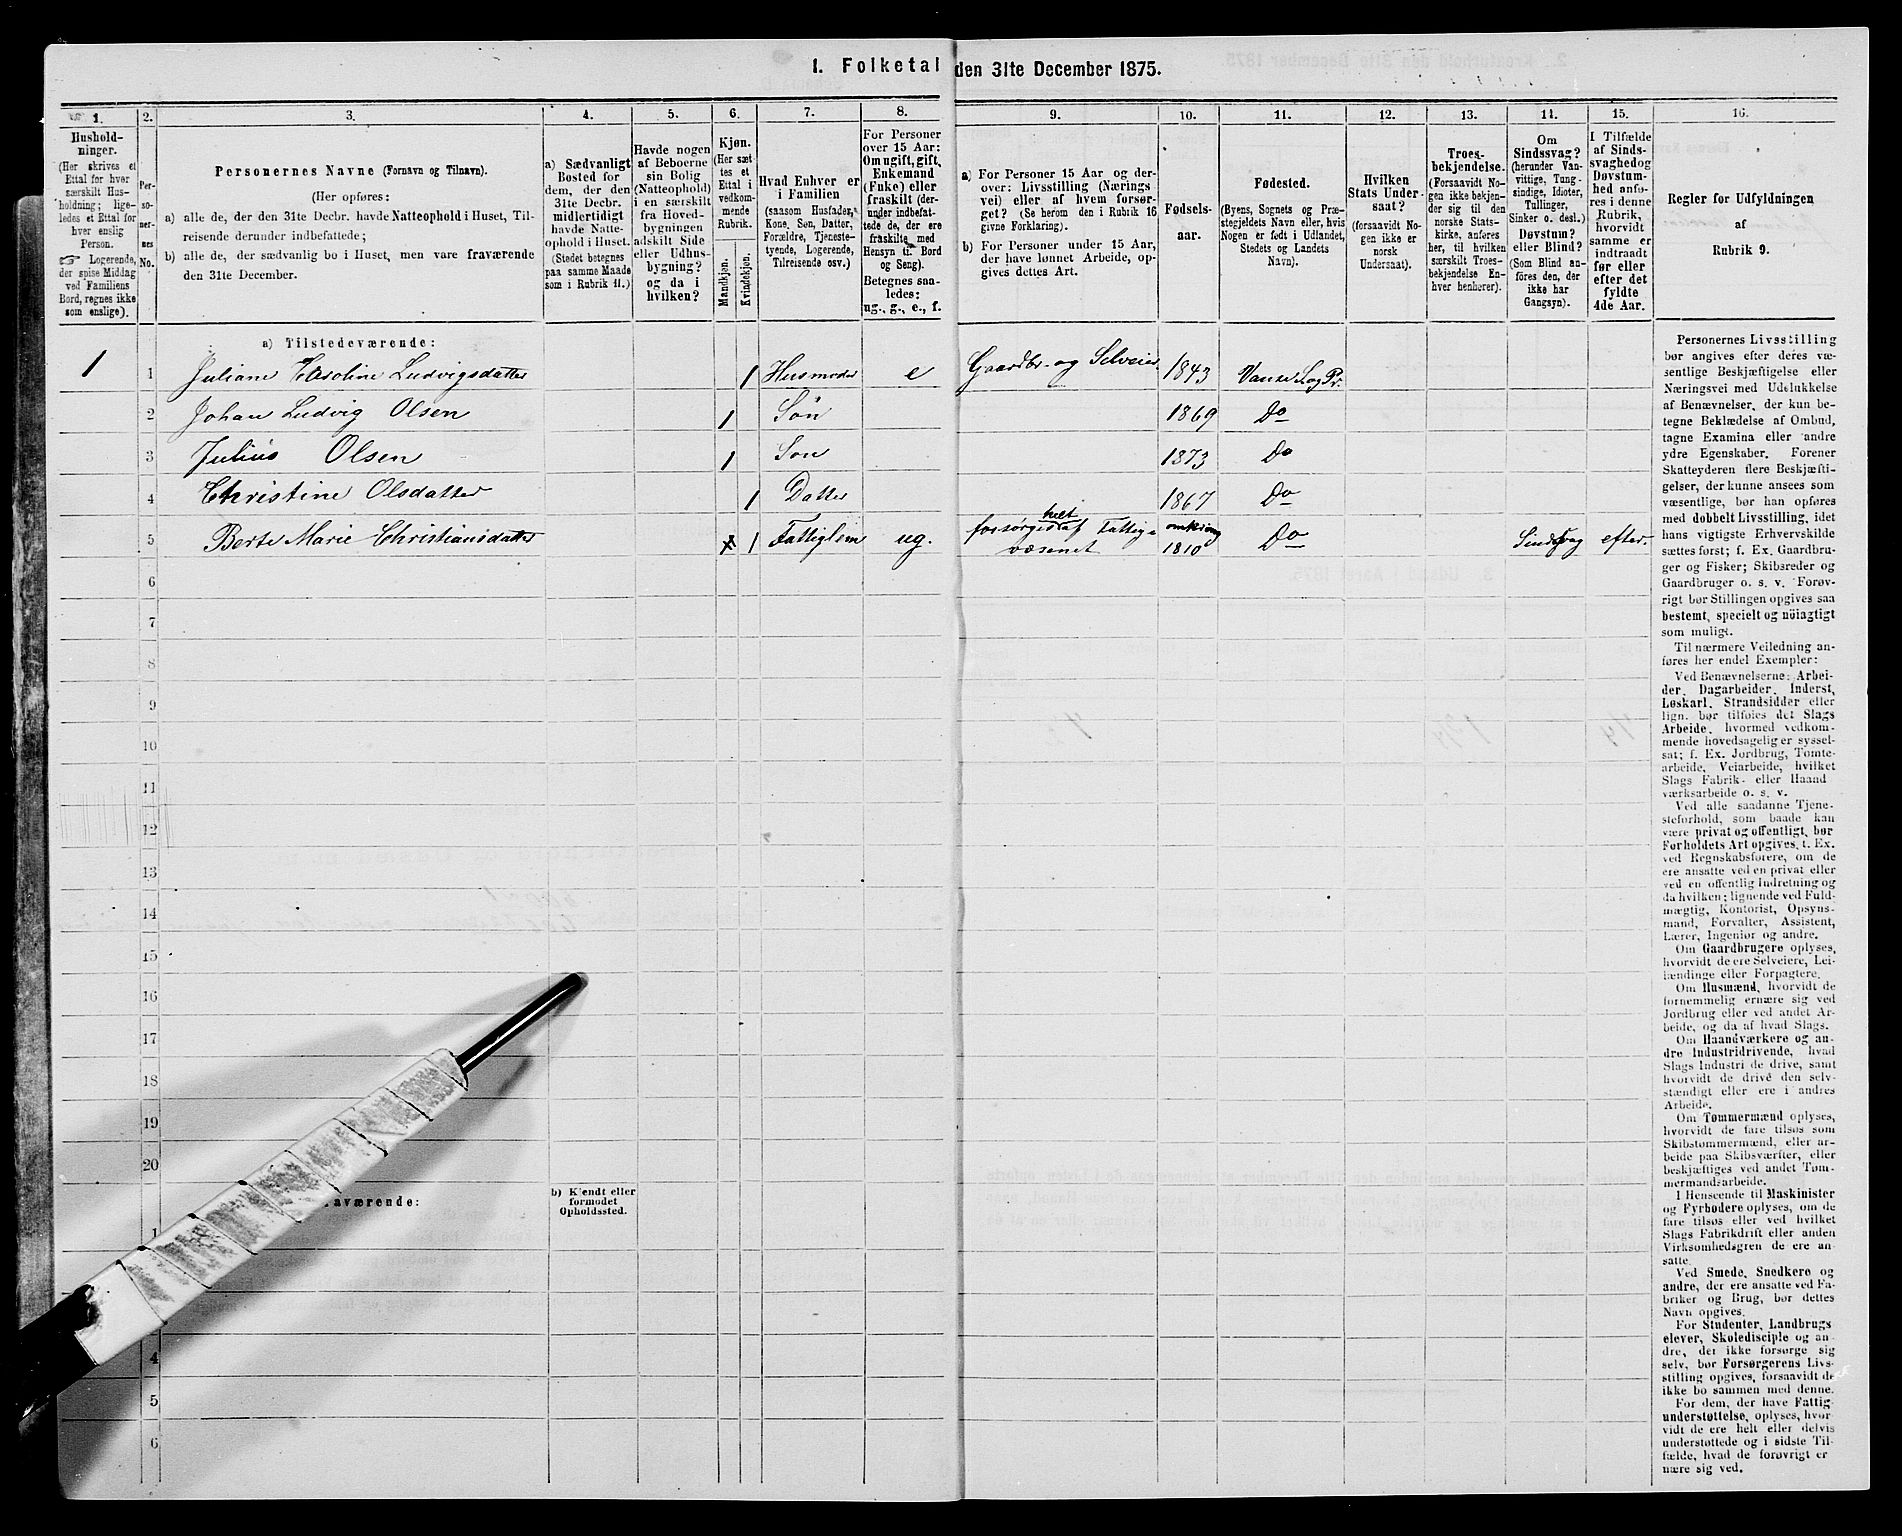 1. Folketal den 31te December 1875.
1.
Hushold-
ninger.
(Her skrives et
Ettal for hver
særskilt Hus-
holdning; lige-
ledes et Ettal for
hver enslig
Person.
☞ Logerende,
der spise Middag
ved Familiens
Bord, regnes ikke
som enslige).
2.
Per-
so-
ner-
nes
No.
3.
Personernes Navne (Fornavn og Tilnavn).
(Her opføres:
a) alle de, der den 31te Decbr. havde Natteophold i Huset, Til-
reisende derunder indbefattede;
b) alle de, der sædvanlig bo i Huset, men vare fraværende
den 31te December.
4.
a) Sædvanligt
Bosted for
dem, der den
31te Decbr.
midlertidigt
havde Natte-
ophold i Huset.
(Stedet betegnes
paa samme Maade
som i Rubrik 11.)
5.
Havde nogen
af Beboerne
sin Bolig
(Natteophold)
i en særskilt
fra Hoved-
bygningen
adskilt Side
eller Udhus-
bygning?
og da i
hvilken?
6.
Kjøn.
(Her sæt-
tes et
Ettal i
vedkom-
mende
Rubrik.
Mandkjøn.
Kvindekjøn.
7.
Hvad Enhver er
i Familien
(saasom Husfader,
Kone, Søn, Datter,
Forældre, Tjeneste-
tyende, Logerende,
Tilreisende osv.)
8.
For Personer
over 15 Aar:
Om ugift, gift,
Enkemand
(Enke) eller
fraskilt (der-
under indbefat-
tede de, der ere
fraskilte med
Hensyn til Bord
og Seng).
Betegnes saa-
ledes:
ug., g., e., f.
9.
a) For Personer 15 Aar og der-
over: Livsstilling (Nærings
vei) eller af hvem forsør-
get? (Se herom den i Rubrik 16
givne Forklaring).
b) For Personer under 15 Aar,
der have lønnet Arbeide, op-
gives dettes Art.
10.
Fødsels-
aar.
11.
Fødested.
(Byens, Sognets og Præ-
stegjeldets Navn eller, hvis
Nogen er født i Udlandet,
Stedets og Landets
Navn).
12.
Hvilken
Stats Under-
saat?
(forsaavidt No-
gen ikke er
norsk
Undersaat).
13.
Troes-
bekjendelse.
(Forsaavidt No-
gen ikke bekjen-
der sig til den
norske Stats-
kirke, anføres
her, til hvilken
særskilt Troes-
bekjendelse En-
hver henhører).
14.
Om
Sindssvag?
(herunder Van-
vittige, Tung-
sindige, Idioter,
Tullinger,
Sinker o. desl.)
Døvstum?
eller Blind?
(Som Blind an-
føres den, der
ikke har
Gangsyn).
15.
I Tilfælde
af Sinds-
svaghed og
Døvstum-
hed anfø-
res i denne
Rubrik,
hvorvidt
samme er
indtraadt
før eller
efter det
fyldte
4de Aar.
16.
Regler for Udfyldningen
af
Rubrik 9.
a) Tilstedeværende:
1 1 Juliane Caroline Ludvigsdatter 1 Husmoder e Gaardbr. og Selveier 1843 Vanse S. og Pr.
2 Johan Ludvig Olsen 1 Søn 1869 Do
3 Julius Olsen 1 Søn 1873 Do
4 Christine Olsdatter 1 Datter 1867 Do
5 Berte Marie Christiansdatter 1 Fattiglem ug. forsørges helt af Fattig-
væsenet omkring
1810 Do Sindssvag efter.
6
7
8
9
10
11
12
13
14
15
16
17
18
19
20
aværende:
b) Kjendt eller
formodet
Opholdssted.
1
4
5
6
Personernes Livsstilling
bør angives efter deres væ-
sentlige Beskjæftigelse eller
Næringsvei med Udelukkelse
af Benævnelser, der kun be-
tegne Beklædelse af Ombud,
tagne Examina eller andre
ydre Egenskaber. Forener
Skatteyderen flere Beskjæfti-
gelser, der kunne ansees som
væsentlige, bør han opføres
med dobbelt Livsstilling, idet
hans vigtigste Erhvervskilde
sættes først; f. Ex. Gaardbru-
ger og Fisker; Skibsreder og
Gaardbruger o. s. v. Forøv-
rigt bør Stillingen opgives saa
bestemt, specielt og nøiagtigt
som muligt.
Til nærmere Veiledning an-
føres her endel Exempler:
Ved Benævnelserne: Arbei-
der, Dagarbeider, Inderst,
Løskarl, Strandsidder eller
lign. bør tilføies det Slags
Arbeide, hvormed vedkom-
mende hovedsagelig er syssel-
sat; f. Ex. Jordbrug, Tomte-
arbeide, Veiarbeide, hvilket
Slags Fabrik- eller Haand
værksarbeide o. s. v.
Ved alle saadanne Tjene-
steforhold, som baade kan
være privat og offentligt, bør
Forholdets Art opgives, f. Ex.
ved Regnskabsførere, om de
ere ansatte ved en privat eller
ved en offentlig Indretning og
da hvilken; lignende ved Fuld-
mægtig, Kontorist, Opsyns-
mand, Forvalter, Assistent,
Lærer, Ingeniør og andre.
Om Gaardbrugere oplyses,
hvorvidt de ere Selveiere, Lei-
lændinge eller Forpagtere.
Om Husmænd, hvorvidt de
fornemmelig ernære sig ved
Jordbrug eller ved andet Ar-
beide, og da af hvad Slags.
Om Haandværkere og an-
dre Industridrivende, hvad
Slags Industri de drive, samt
hvorvidt de drive den selv-
stændigt eller ere i andres
Arbeide.
Om Tømmermænd oplyses,
hvorvidt de fare tilsøs som
Skibstømmermænd, eller ar-
beide paa Skibsværfter, eller
beskjæftiges ved andet Tøm-
mermandsarbeide.
I Henseende til Maskinister
og Fyrbødere oplyses, om de
fare tilsøs eller ved hvilket
Slags Fabrikdrift eller anden
Virksomhedsgren de ere an-
satte.
Ved Smede, Snedkere og
andre, der ere ansatte ved Fa-
briker og Brug, bør dettes
Navn opgives.
For Studenter, Landbrugs
elever, Skoledisciple og an-
dre, der ikke forsørge sig
selv, bør Forsørgerens Livs-
stilling opgives, forsaavidt de
ikke bo sammen med denne.
For dem, der have Fattig
understøttelse, oplyses, hvor-
vidt de ere helt eller delvis
understøttede og i sidste Til-
fælde, hvad de forøvrigt er
nære sig ved.